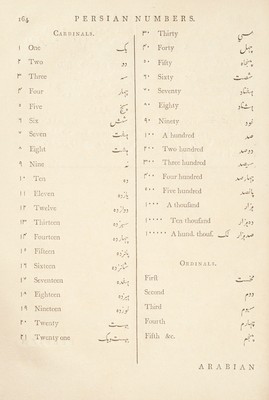 164 PERSIAN NUMBERS.
CARDINALS.
۱ One یک
۲ Two دو
۳ Three سه
۴ Four چهار
۵ Five پنج
۶ Six شش
۷ Seven هفت
۸ Eight هشت
۹ Nine نه
۱۰ Ten ده
۱۱ Eleven یازده
۱۲ Twelve دوازده
۱۳ Thirteen سیزده
۱۴ Fourteen چهارده
۱۵ Fifteen پانزده
۱۶ Sixteen شانزده
۱۷ Seventeen هفده
۱۸ Eighteen
۱۹ Nineteen نوزده
۲۰ Twenty بیست
۲۱ Twenty one بیست ویک
۳۰ Thirty سی
۴۰ Forty چهل
۵۰ Fifty پنجاه
۶۰ Sixty شصت
۷۰ Seventy هفتاد
۸۰ Eighty هشتاد
۹۰ Ninety نود
۱۰۰ A hundred صد
۲۰۰ Two hundred دوصد
۳۰۰ Three hundred سیصد
۴۰۰ Four hundred چهارصد
۵۰۰ Five hundred پانصد
۱۰۰۰ A thousand هزار
۱۰۰۰۰ Ten thousand ده هزار
۱۰۰۰۰۰ A hund. thous. صد هزار لک
ORDINALS.
First نخست
Second دوم
Third سیوم
Fourth چهارم
Fifth &c. پنجم
ARABIAN